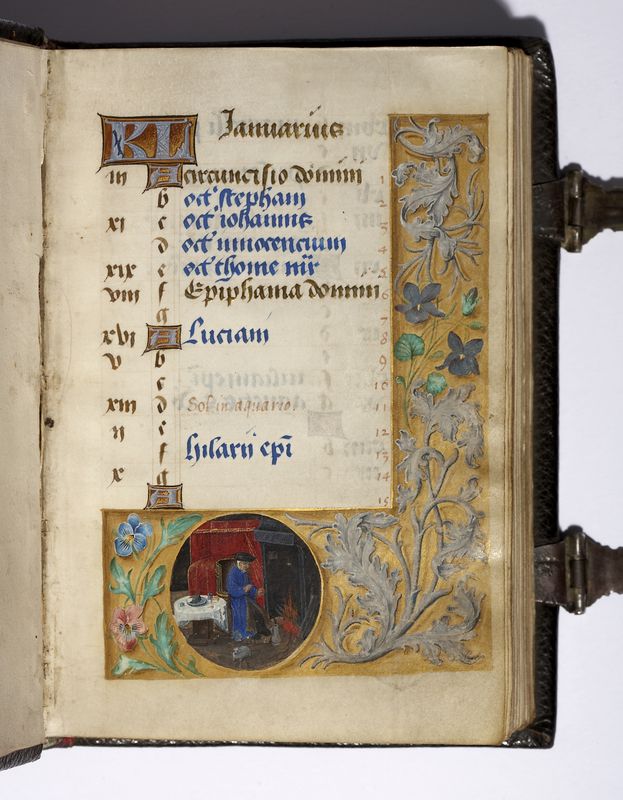 KL Januarius
iii A circuncisio domini 1
b oct' stephani 2
xi c oct' iohannis 3
d oct' innocencium 4
xix e oct' thome mr̄ 5
viii f Epiphania domini 6
g 7
xvi A Luciani 8
v b 9
c 10
xiii d Sol in aquario. 11
ij e 12
f hilarij ep̄i 13
x g 14
A 15